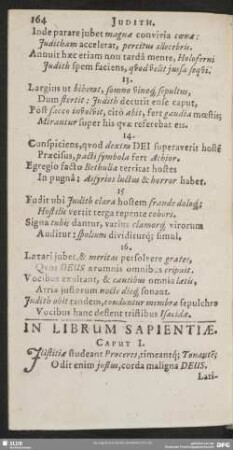 164 JUDITH.
Inde parare jubet magnæ convivia cœnæ:
Juditham accelerat, percitus illecebris.
Annuit hæc etiam non tardâ mente, Holoferni
Judith spem faciens, qvod velit jussa seqvi.
13.
Largius ut biberat, somno vinoq; sepultus,
Dum stertit: Judith decutit ense caput,
Post sacco involvit, citò abit, fert gaudia mœstis;
Mirantur super his quæ referebat eis.
14.
Conspiciens, quod dextra DEI superaverit hostē
Præcisus, pacti symbola fert Achior.
Egregio facto Bethulia territat hostes
In pugnâ: Assyrios luctus & horror habet.
15
Fudit ubi Judith clara hostem fraude doloq;
Hostilis vertit terga repente cohors.
Signa tubis dantur, varius clamorq; virorum
Auditur: spolium dividiturq; simul.
16.
Lætari jubet, & meritas persolvere grates,
Quos DEUS ærumnis omnibus eripuit.
Vocibus exultant, & cantibus omnia lætis,
Atria justorum nocte dieq; sonant.
Judith obit tandem, conduntur membra sepulchro
Vocibus hanc deflent tristibus Isacidæ.
IN LIBRUM SAPIENTIÆ.
CAPUT I.
JUstitiæ studeant Proceres, timeantq; Tonantē;
Odit enim justus, corda maligna DEUS.
Læti-